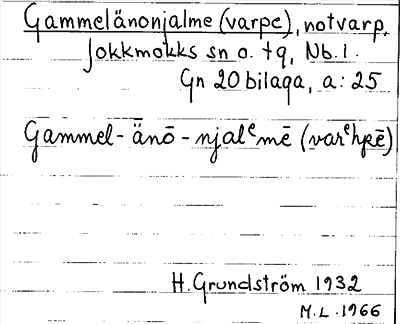 Gammelänonjalme (varpe), notvarp,
Jokkmokks sn o. tg, Nb.l.
Gn 20 bilaga, a: 25
Gammel-änō-njalᵉmē (varᵉhpē)
H. Grundström 1932
M.L. 1966